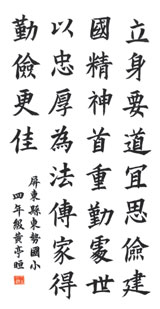 立身要道宜思儉建
國精神首重勤處世
以忠厚為法傳家得
勤儉更佳
屏東縣東勢國小
四年級黄亭晅